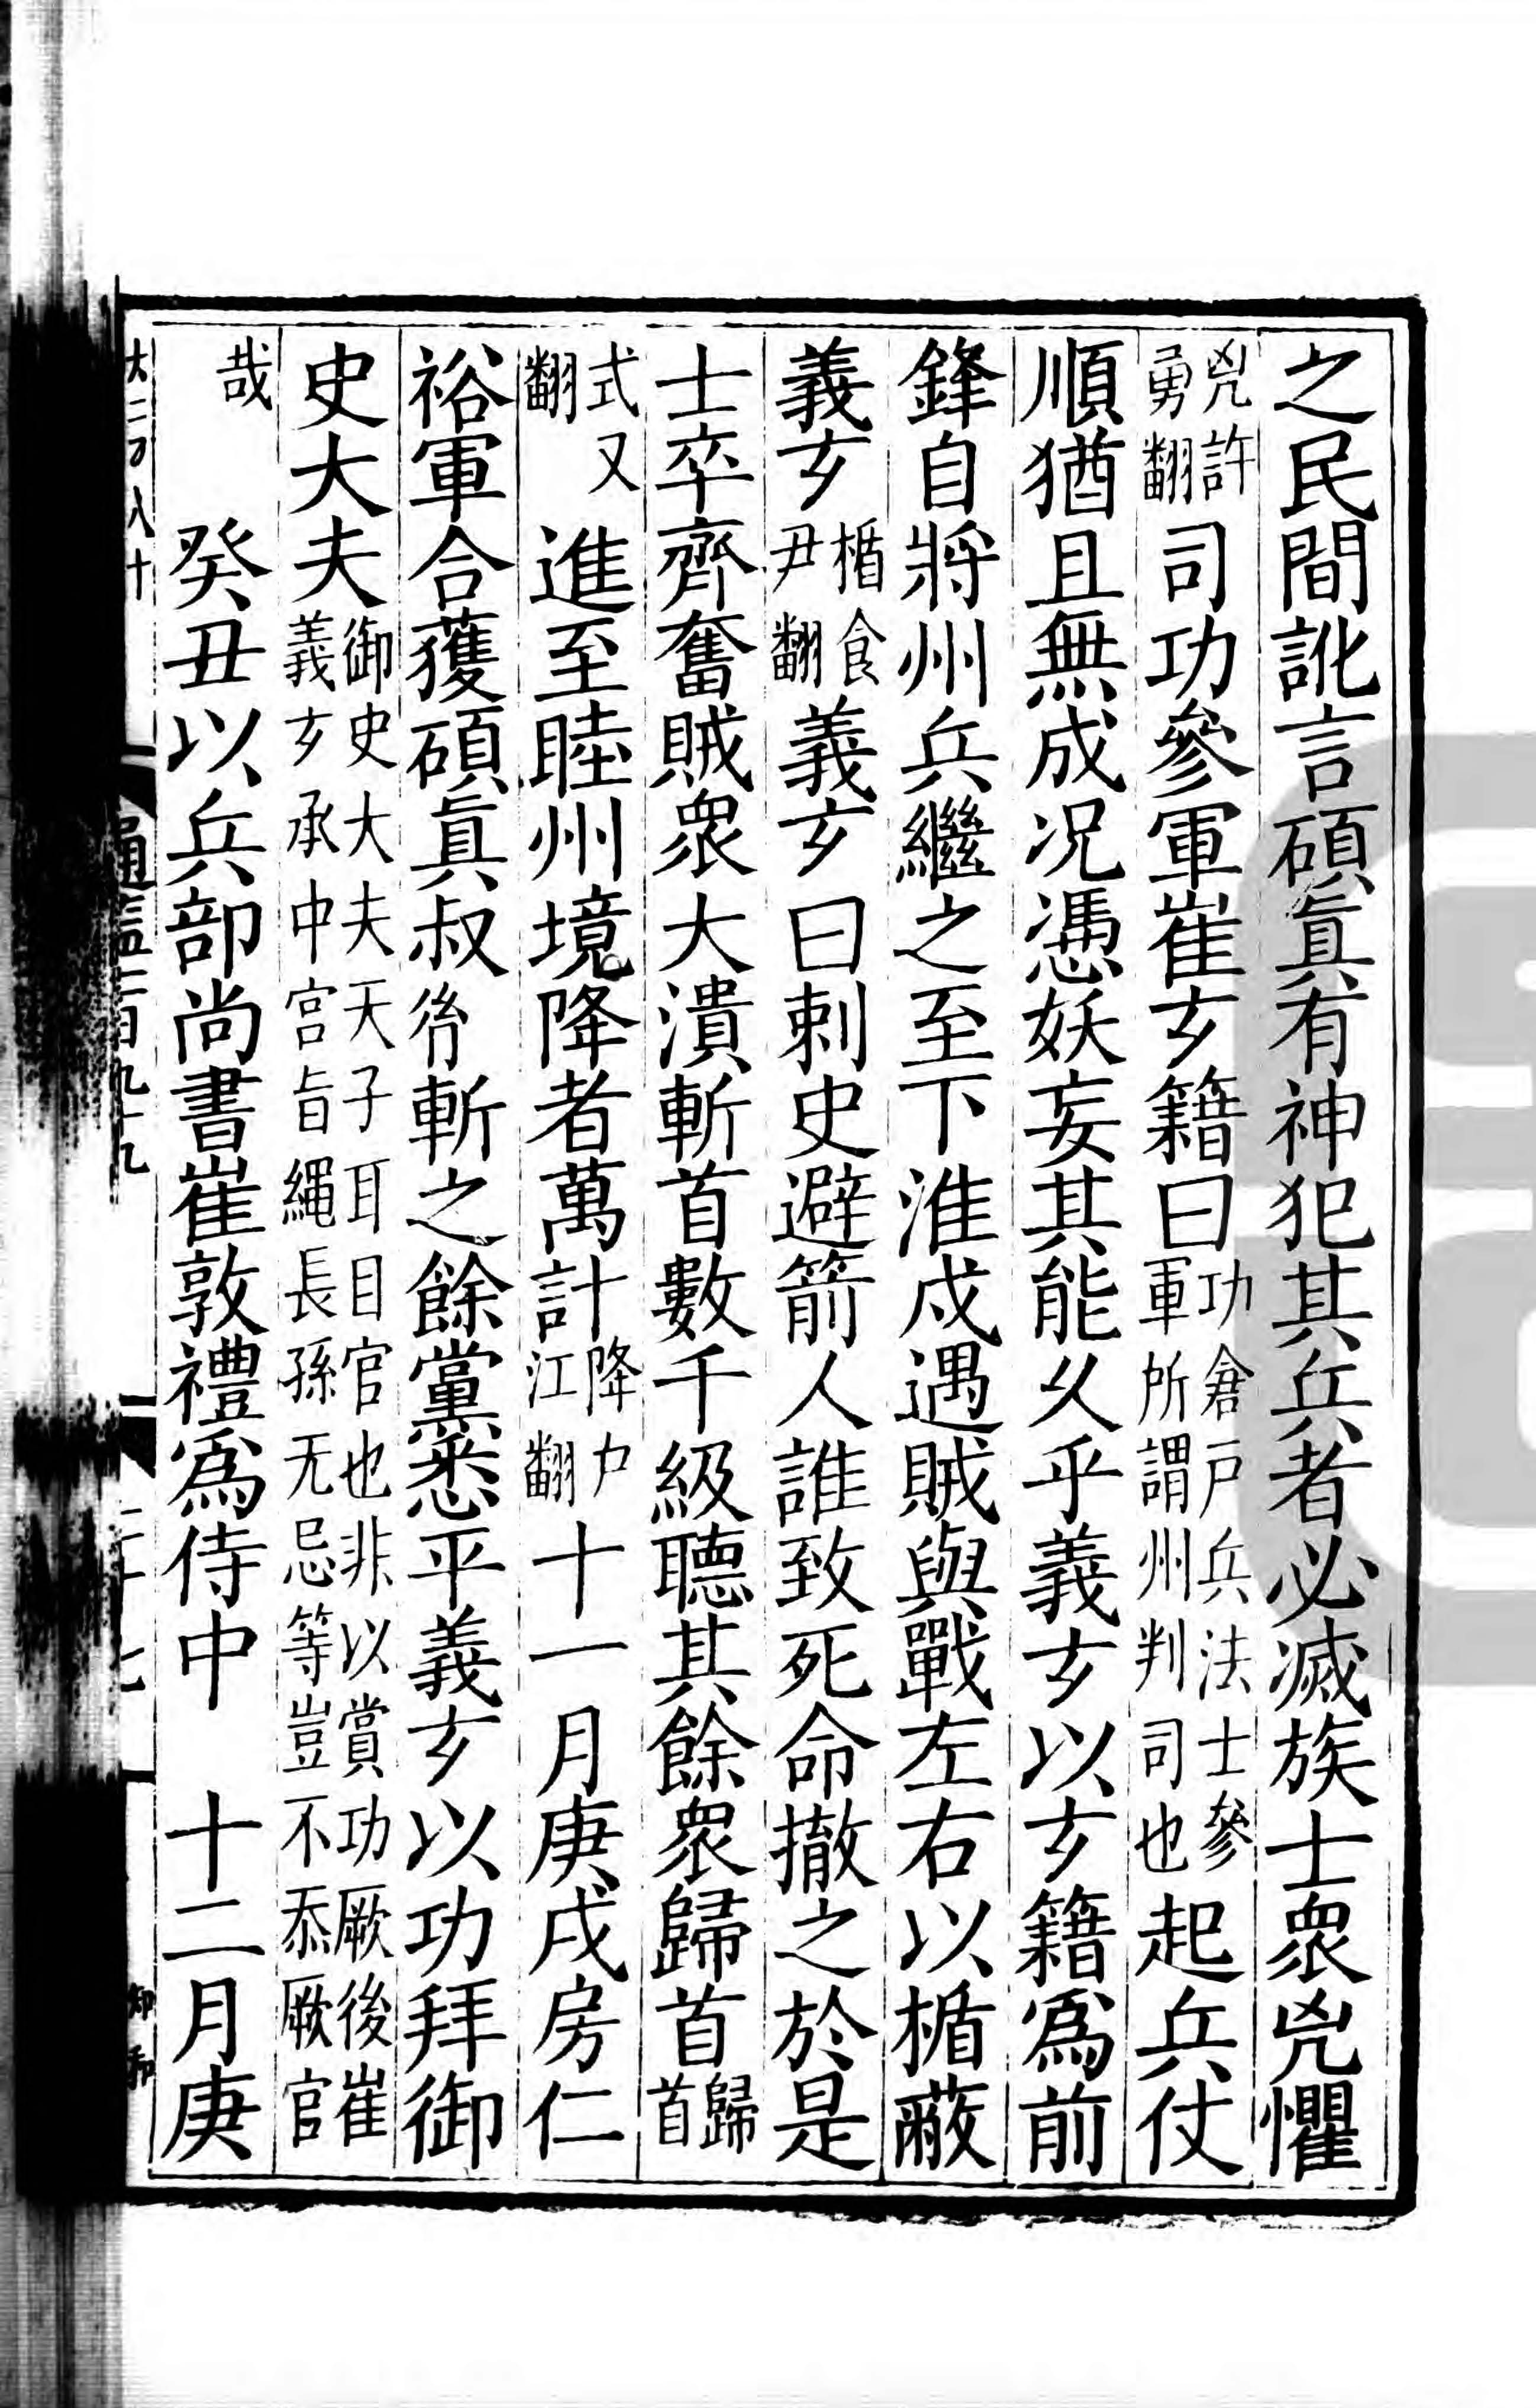 之民間訛言碩眞有神犯其兵者必滅族士衆兇懼
兇許勇翻司功參軍崔玄籍曰功倉戶兵法士參軍所謂州判司也起兵仗
順猶且無成况憑妖妄其能乆乎義玄以玄籍爲前
鋒自將州兵繼之至下淮戍遇賊與戰左右以楯蔽
義玄楯食尹翻義玄曰刺史避箭人誰致死命撤之於是
士卒齊奮賊衆大潰斬首數千級聽其餘衆歸首歸首
式又翻進至睦州境降者萬計降户江翻十一月庚戌房仁
裕軍合獲碩眞叔胤斬之餘黨悉平義玄以功拜御
史大夫御史大夫天子耳目官也非以賞功厥後崔義玄承中宮旨繩長孫无忌等豈不忝厥官
哉癸丑以兵部尚書崔敦禮爲侍中 十二月庚
通鑑一百九十九